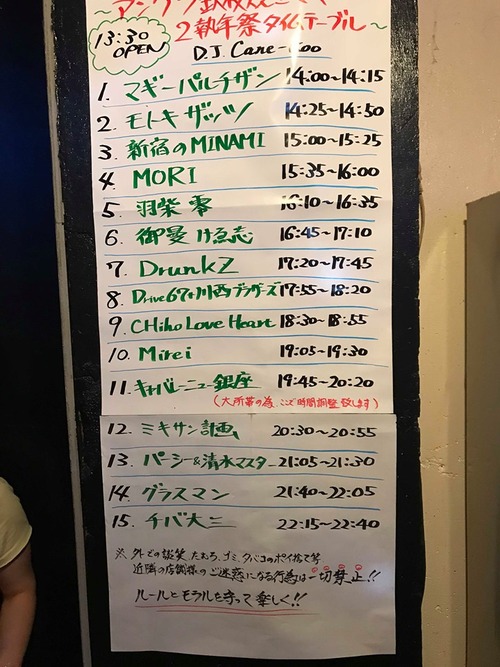 2執年祭タイムテーブル～
13:30
OPEN
D.J. Cane-Goo
1. マギーパルチザン 14:00～14:15
2. モトキ ザッパ 14:25～14:50
3. 新宿のMINAMI 15:00～15:25
4. MORI 15:35～16:00
5 羽柴 零 16:10～16:35
6 御曼 けゑ志 16:45～17:10
7 DrunkZ 17:20～17:45
8 Drive67+川西ブラザーズ 17:55～18:20
9 CHiho Love Heart 18:30～18:55
10. Mirei 19:05～19:30
11. キャバレーニュー銀座 19:45～20:20
(大所帯の為、ここで時間調整致します)
12. ミキサン計画 20:30～20:55
13. パーシー&清水マスター 21:05～21:30
14. グラスマン 21:40～22:05
15. チバ大三 22:15～22:40
※ 外での談笑、たむろ、ゴミ、タバコのポイ捨て等
近隣の店舗様のご迷惑になる行為は一切禁止!!
ルールとモラルを守って楽しく!!